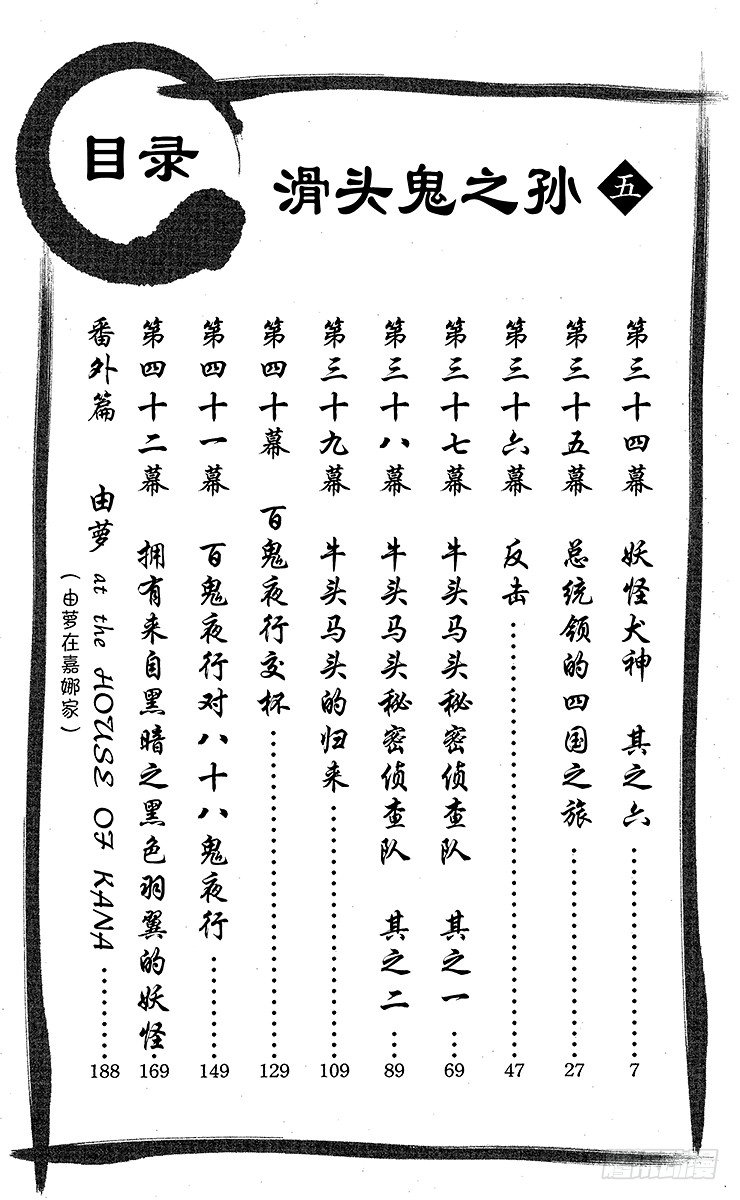 目录
滑头鬼之孙 五
第三十四幕 妖怪犬神 其之六……7
第三十五幕 总统领的四国之旅……27
第三十六幕 反击……47
第三十七幕 牛头马头秘密侦查队 其之一…69
第三十八幕 牛头马头秘密侦查队 其之二…89
第三十九幕 牛头马头的归来……109
第四十幕 百鬼夜行交杯……129
第四十一幕 百鬼夜行对八十八鬼夜行……149
第四十二幕 拥有来自黑暗之黑色羽翼的妖怪…169
番外篇 由萝 at the HOUSE OF KANA……188
(由萝在嘉娜家)